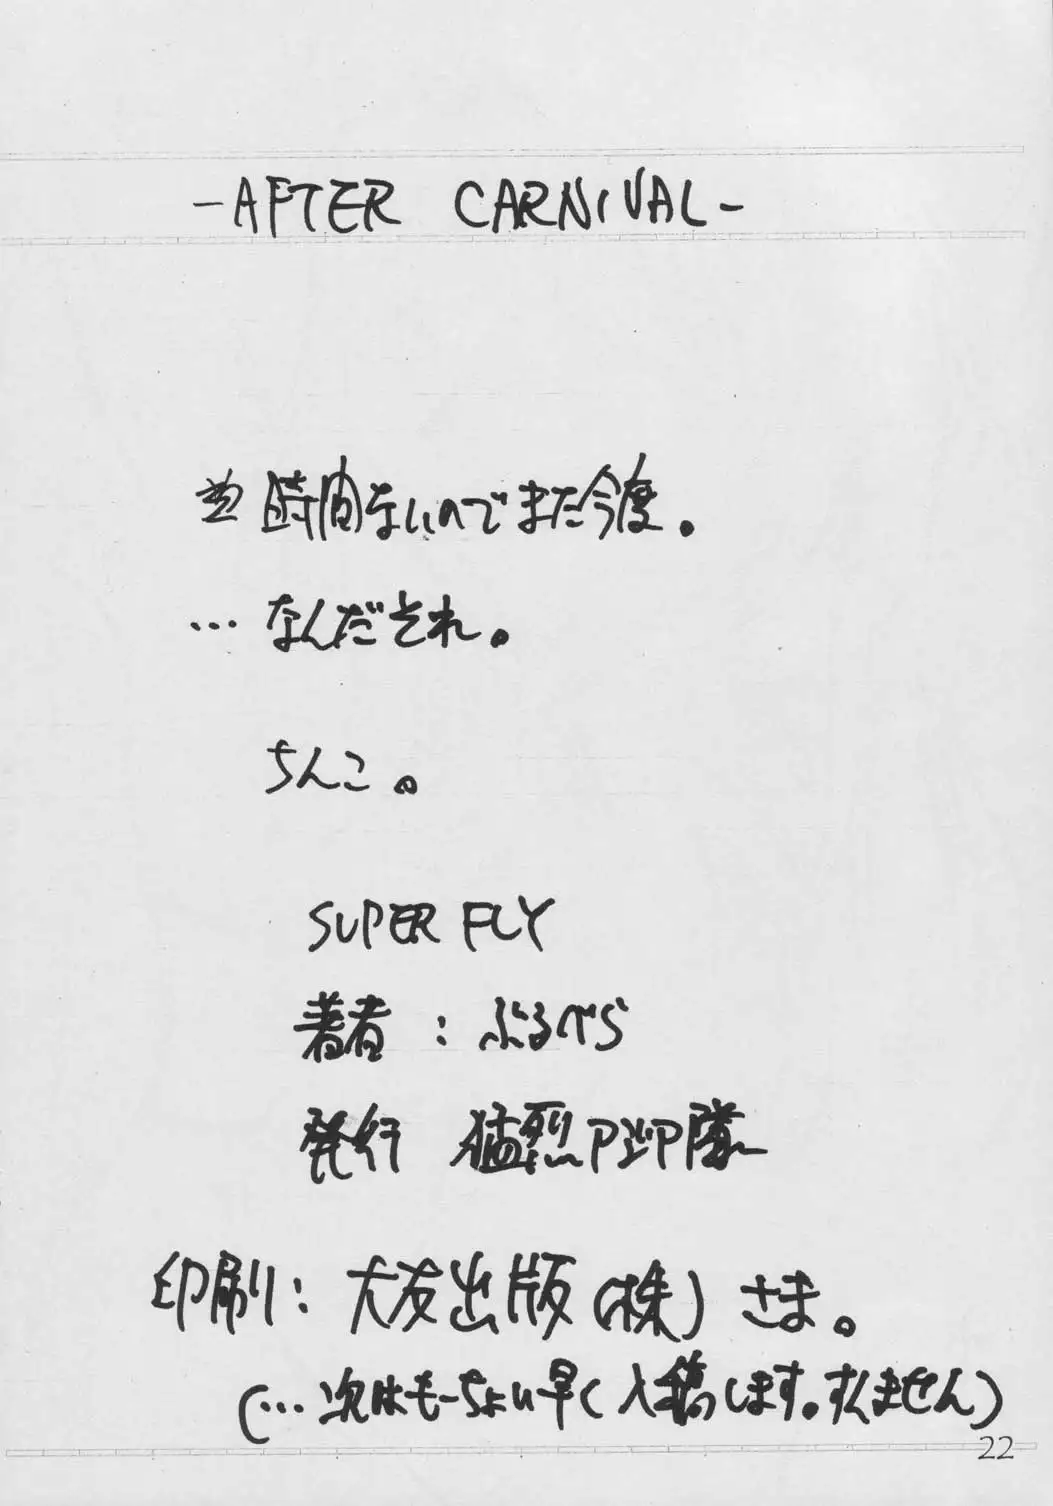 -AFTER CARNIVAL-
時間ないのでまた今度。
…なんだそれ。
ちんこ。
SUPER FLY
著者：ぶるべら
発行 猛烈PジP隊
印刷：大友出版(株)さま。
(…次はも～ちょい早く入稿します。すんません)
22